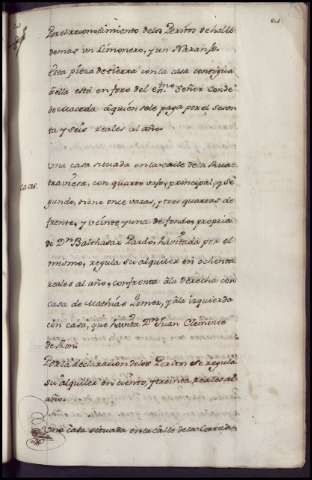 Por el reconocimiento de los Peritos se halló
demas un Limonero, y un Naranjo.
Esta pieza de tierra con la casa contigua
à ella està en foro del Exmo Señor Conde
de Maceda à quien se le paga por el sesen
ta y seis reales al año.
Una casa situada en la calle de la
trainera, con quarto vajo, principal, y se
gundo, tiene once varas, y tres quartas de
frente, y veinte y una de fondo, propria
de Dn Balthasar Pardo, havitada por el
mismo, regula su alquiler en ochenta
reales al año, confronta à la derecha con
casa de Mathias Gomez, y à la izquierda
con casa, que havita Dn Juan
de
Por la declaracion de los Peritos se regula
su alquiler en ciento, y treinta reales al
año.
Una casa situada en la calle de la